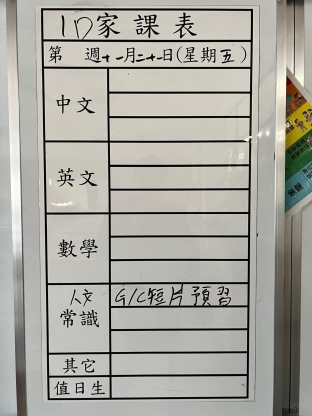 1D家課表
第 週十一月二十一日(星期五)
中文
英文
數學
人文 G/C短片預習
常識
其它
值日生